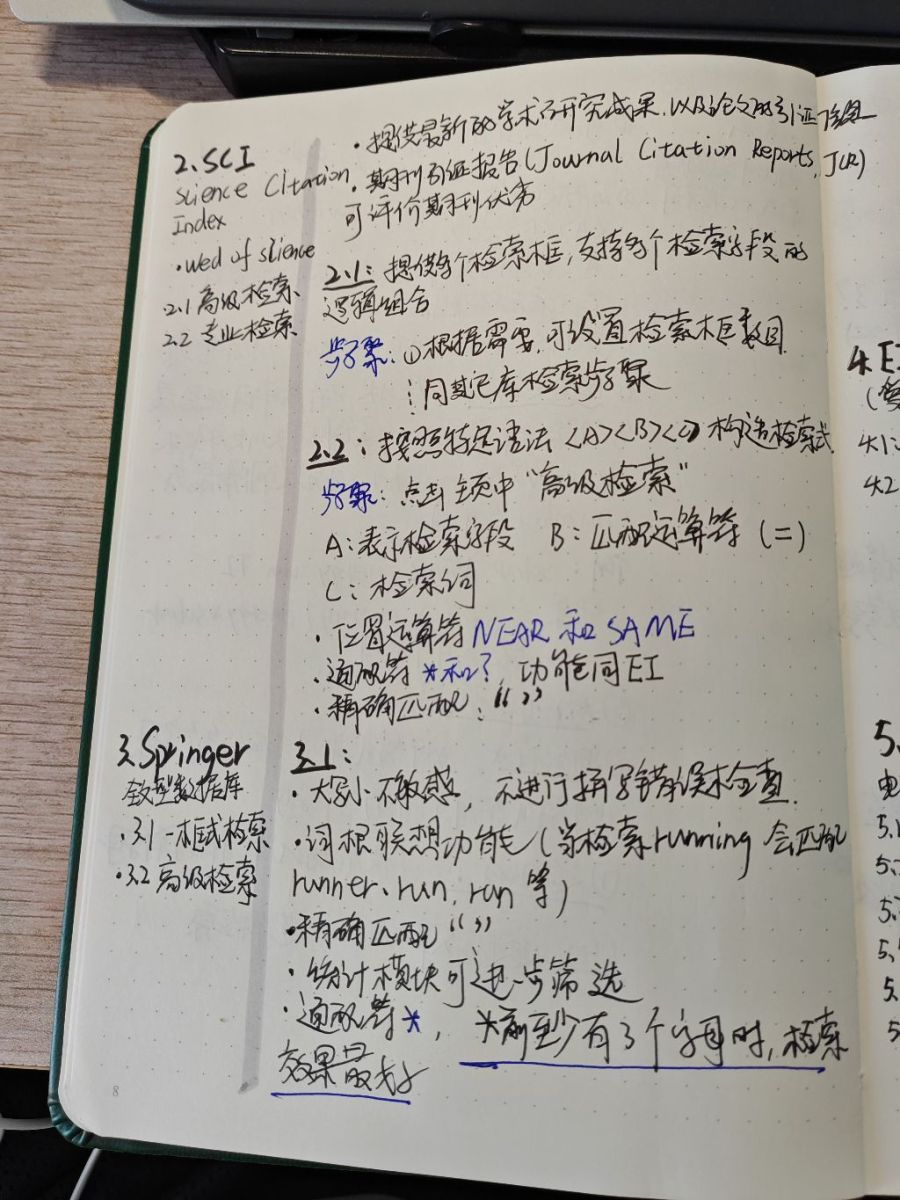 2.SCI
Science Citation
Index
·wed of science
2.1 高级检索
2.2 专业检索
·提供最新的学术研究成果,以及论文的引证
·期刊引证报告(Journal Citation Reports, JCR)
可评价期刊优劣
2.1:提供多个检索框,支持多个检索字段的
逻辑组合
步骤:①根据需要,可设置检索框数目
⋮同其它库检索步骤
2.2:按照特定语法<A><B><C>构造检索式
步骤:点击主页中“高级检索”
A:表示检索字段 B:匹配运算符(=)
C:检索词
·位置运算符NEAR和SAME
·通配符*和?,功能同EI
·精确匹配:“ ”
3.Springer
全文型数据库
·3.1 一框式检索
·3.2 高级检索
3.1:
·大写小不敏感,不进行拼写错误检查.
·词根联想功能(当检索running会匹配
runner、run,run等)
·精确匹配“ ”
·统计模块可进一步筛选
·通配符*,*前至少有3个字母时,检索
效果最好
8
4.EI
4.1:
4.2
5.
电
5.1
5.
5.
5.
5.
5